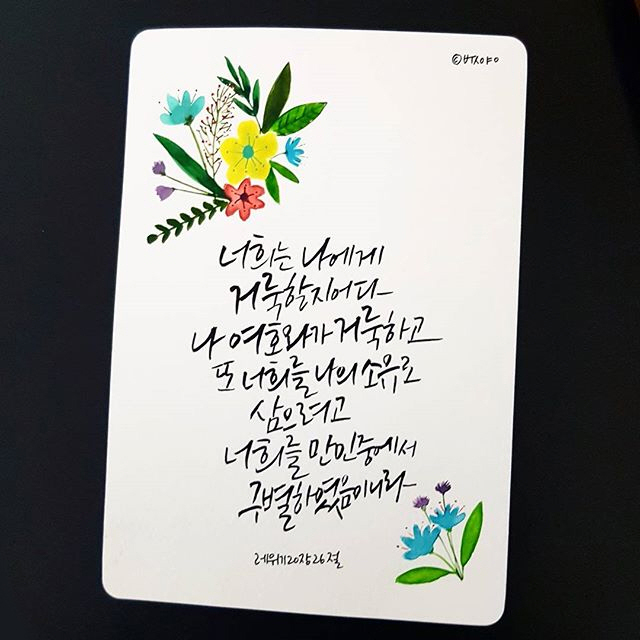 너희는 나에게
거룩할지어다
나 여호와가 거룩하고
또 너희를 나의 소유로
삼으려고
너희를 만민중에서
구별하였음이니라
레위기20장26절